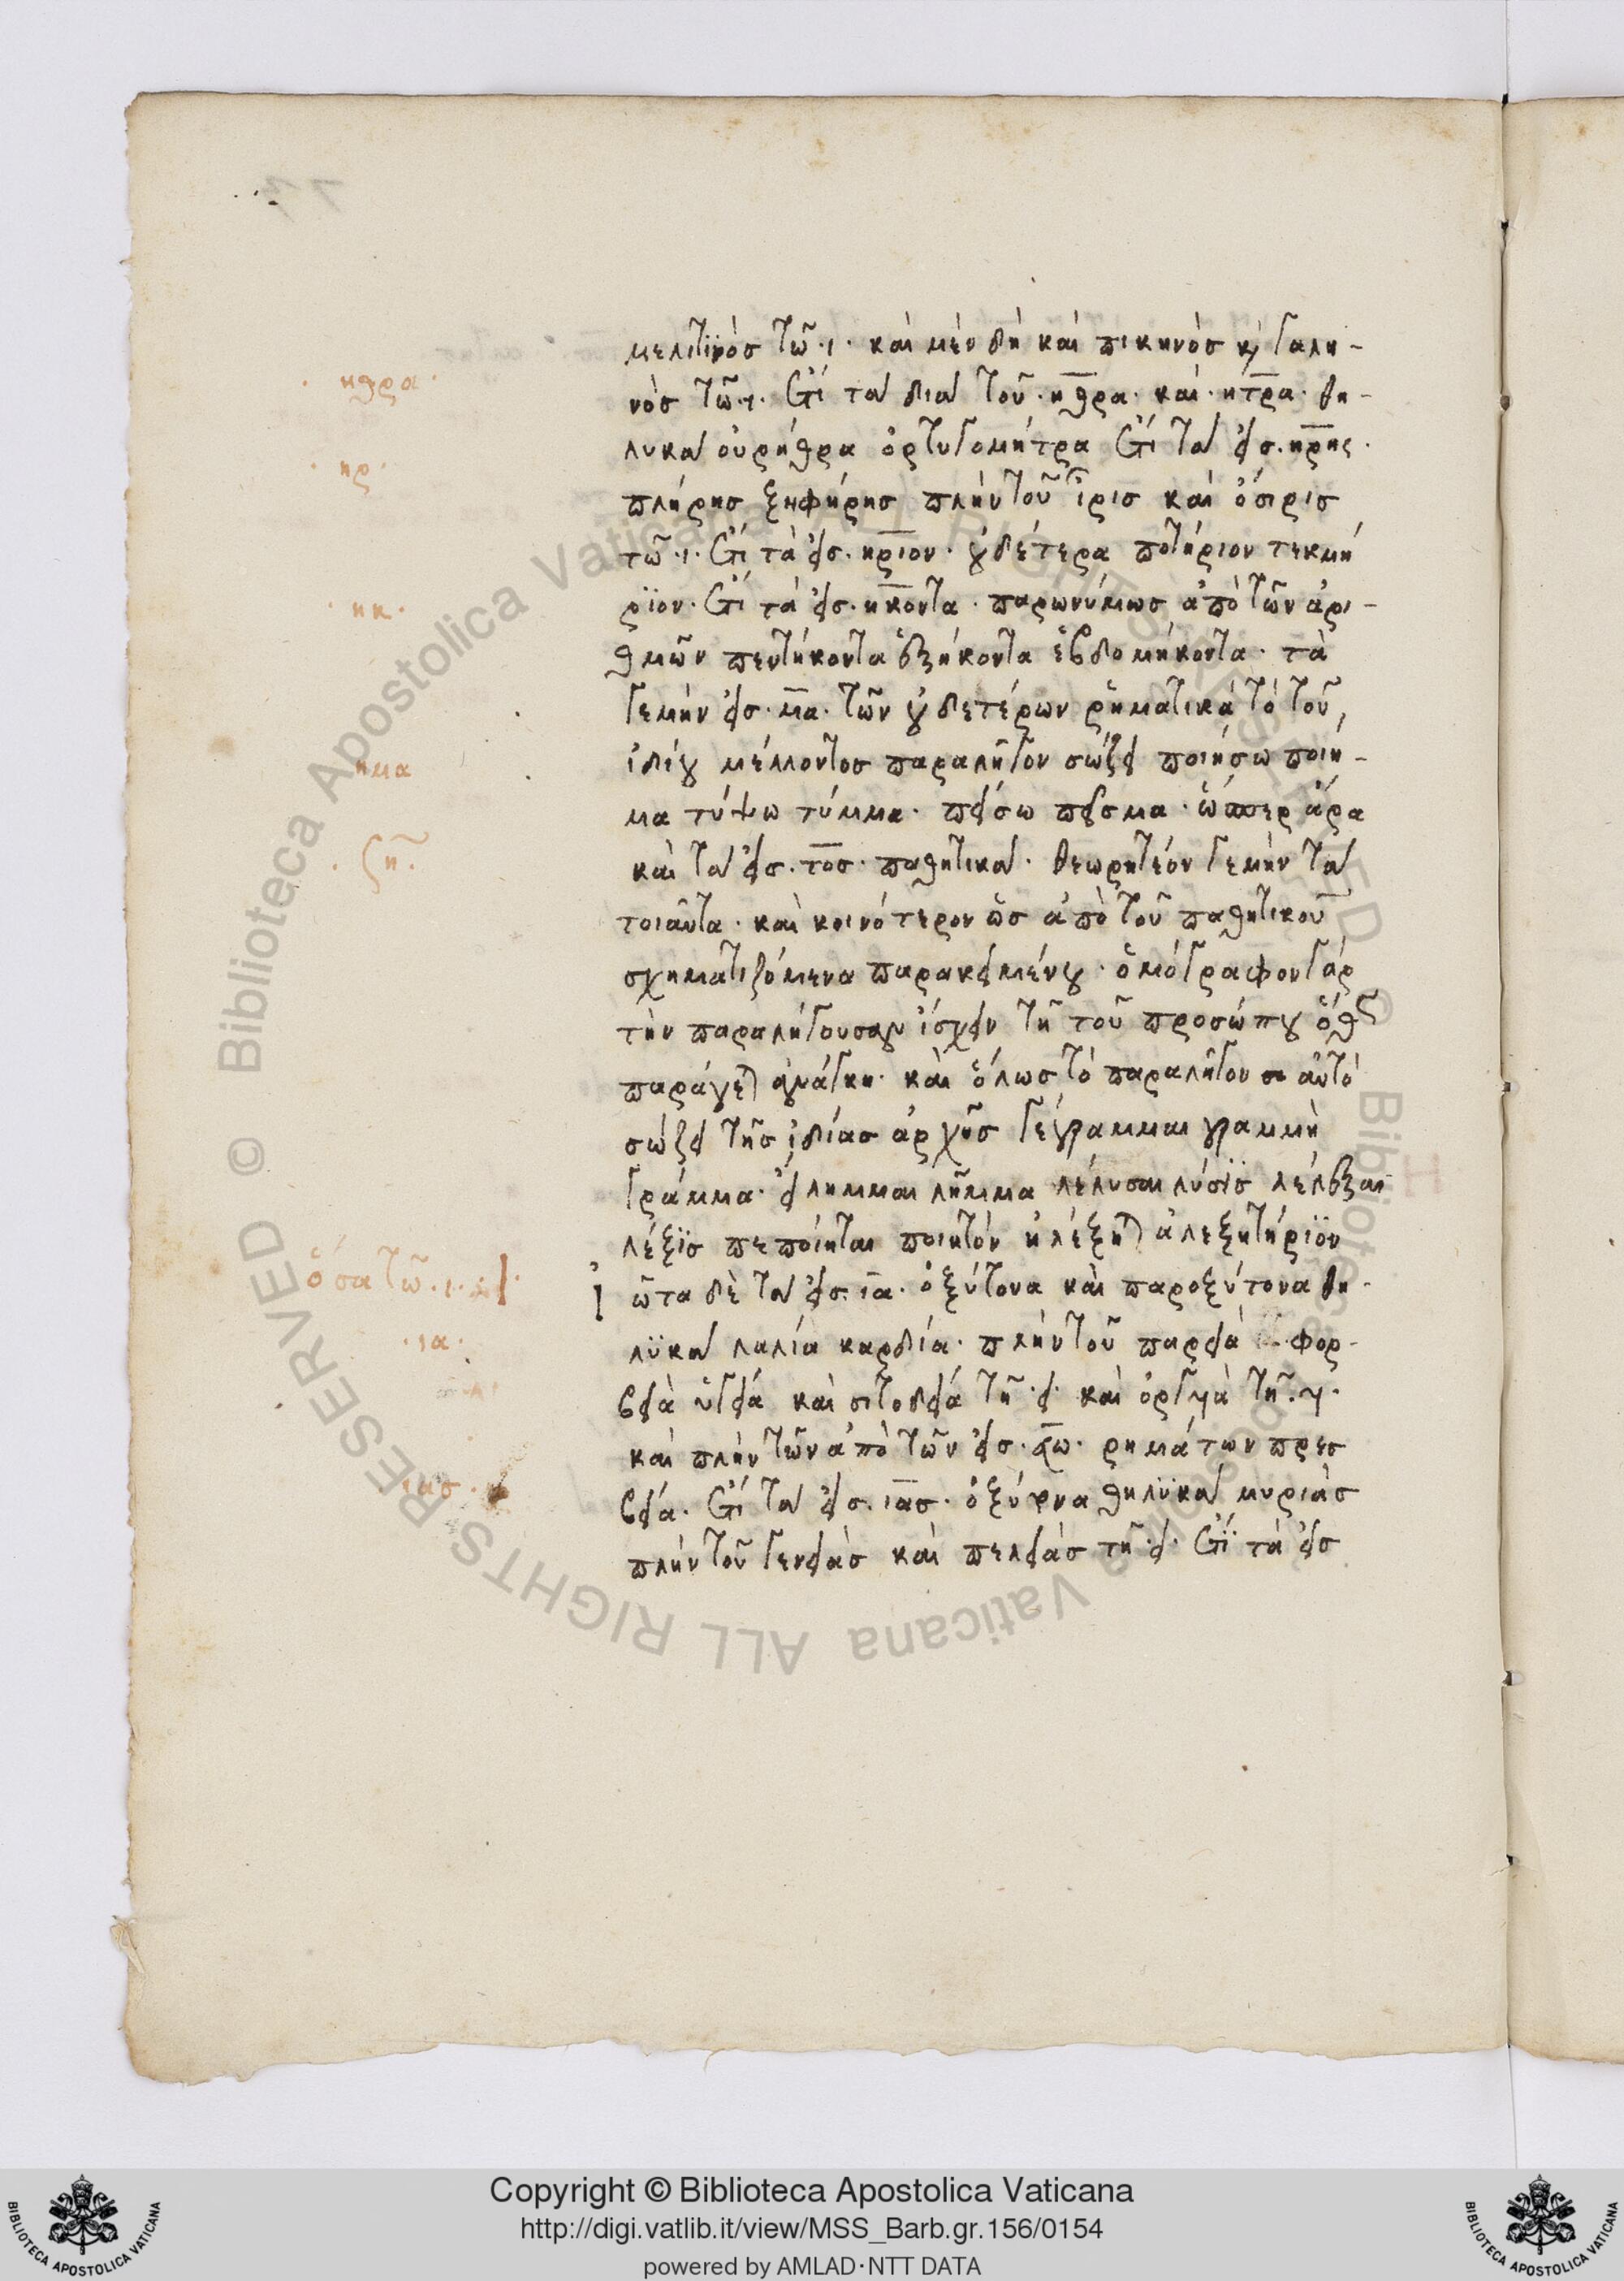 μελιτϊνὸσ τῶ·ι· καὶ μὲν δὴ καὶ πικηνὸσ κ γαλη-
· ηθρα ·
νὸσ τῶ·ι· ἔτι τὰ διὰ τοῦ·ηθρα· καὶ·ητρα· θη-
λυκὰ οὐρήθρα ὀρτυγομήτρα ἔτι τὰ εἰσ·ηρης·
· ηρ ·
πλήρησ ξηφήρησ πλὴν τοῦ ἶρισ καὶ ὄσιρισ
τῶ·ι· ἔτι τὰ εἰσ·ηριον· οὐδέτερα ποτήριον τεκμή
· ηκ ·
ρϊον· ἔτι τὰ εἰσ·ηκοντα· παρωνύμωσ ἀπὸ τῶν ἀρι-
θμῶν πεντήκοντα ἑξήκοντα ἑβδομήκοντα· τὰ
γεμὴν εἰσ·μα· τῶν οὐδετέρων ῥηματικὰ τὸ τοῦ
ημα
ἰδίου μέλλοντοσ παραλῆγον σώζει ποιήσω ποιη-
μα τύψω τύμμα· πείσω πεῖσμα· ὥσπερ ἄρα
· ζη ·
καὶ τὰ εἰσ·τοσ· παθητικὰ· θεωρητέον γεμὴν τὰ
τοιαῦτα· καὶ κοινότερον ὡσ ἀπὸ τοῦ παθητικοῦ
σχηματιζόμενα παρακειμένου· ὁμόγραφον γάρ
τὴν παραλήγουσαν ἰσχεῖν τῆ τοῦ προσώπου ὅθεν
παράγεται ἀνάγκη· καὶ ὅλωσ τὸ παραλῆγον αὐτὸ
σώζει τῆσ ἰδίασ ἀρχῆσ γέγραμμαι γραμμὴ
γράμμα· εἴλημμαι λῆμμα λέλυσαι λύσϊσ λέλεξαι
λέξϊσ πεποίηται ποιητὸν ἠλέξηται ἀλεξητήρϊον
ὅσα τῶ·ι·
ἰῶτα δὲ τὰ εἰσ·ια· ὀξύτονα καὶ παροξύτονα θη-
· ια ·
λϋκὰ λαλιά καρδία· πλὴν τοῦ παρειὰ φορ-
βειὰ ὑγειά καὶ σιτοδειά τῆ·ει· καὶ ὀργυιὰ τῆ·υι·
καὶ πλὴν τῶν ἀπὸ τῶν εἰσ·εύω· ρημάτων πρεσ
· ιασ ·
βειά· ἔτι τὰ εἰσ·ιασ· ὀξύτονα θηλϋκὰ μυριὰσ
πλὴν τοῦ γενειὰσ καὶ πελειὰσ τῆ·ει· ἔτι τὰ εἰσ
Copyright © Biblioteca Apostolica Vaticana
http://digi.vatlib.it/view/MSS_Barb.gr.156/0154
powered by AMLAD·NTT DATA
BIBLIOTECA APOSTOLICA VATICANA
BIBLIOTECA APOSTOLICA VATICANA
Biblioteca Apostolica Vaticana ALL RIGHTS RESERVED ©
Biblioteca Apostolica Vaticana ALL RIGHTS RESERVED ©